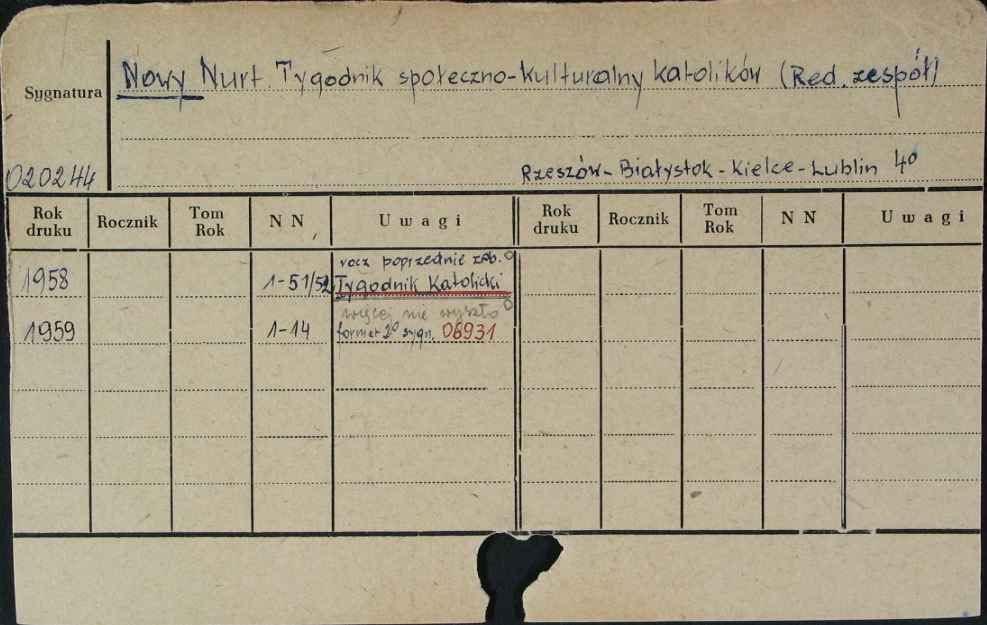 Nowy Nurt. Tygodnik społeczno-kulturalny katolików (Red. zespół)
Sygnatura
020244
Rzeszów-Białystok-Kielce-Lublin 4º
Rok druku Rocznik Tom Rok N N Uwagi Rok druku Rocznik Tom Rok N N Uwagi
rocz poprzednie zob.
1958 1-51/52 Tygodnik Katolicki
więcej nie wyszło
1959 1-14 format 2º sygn. 06931